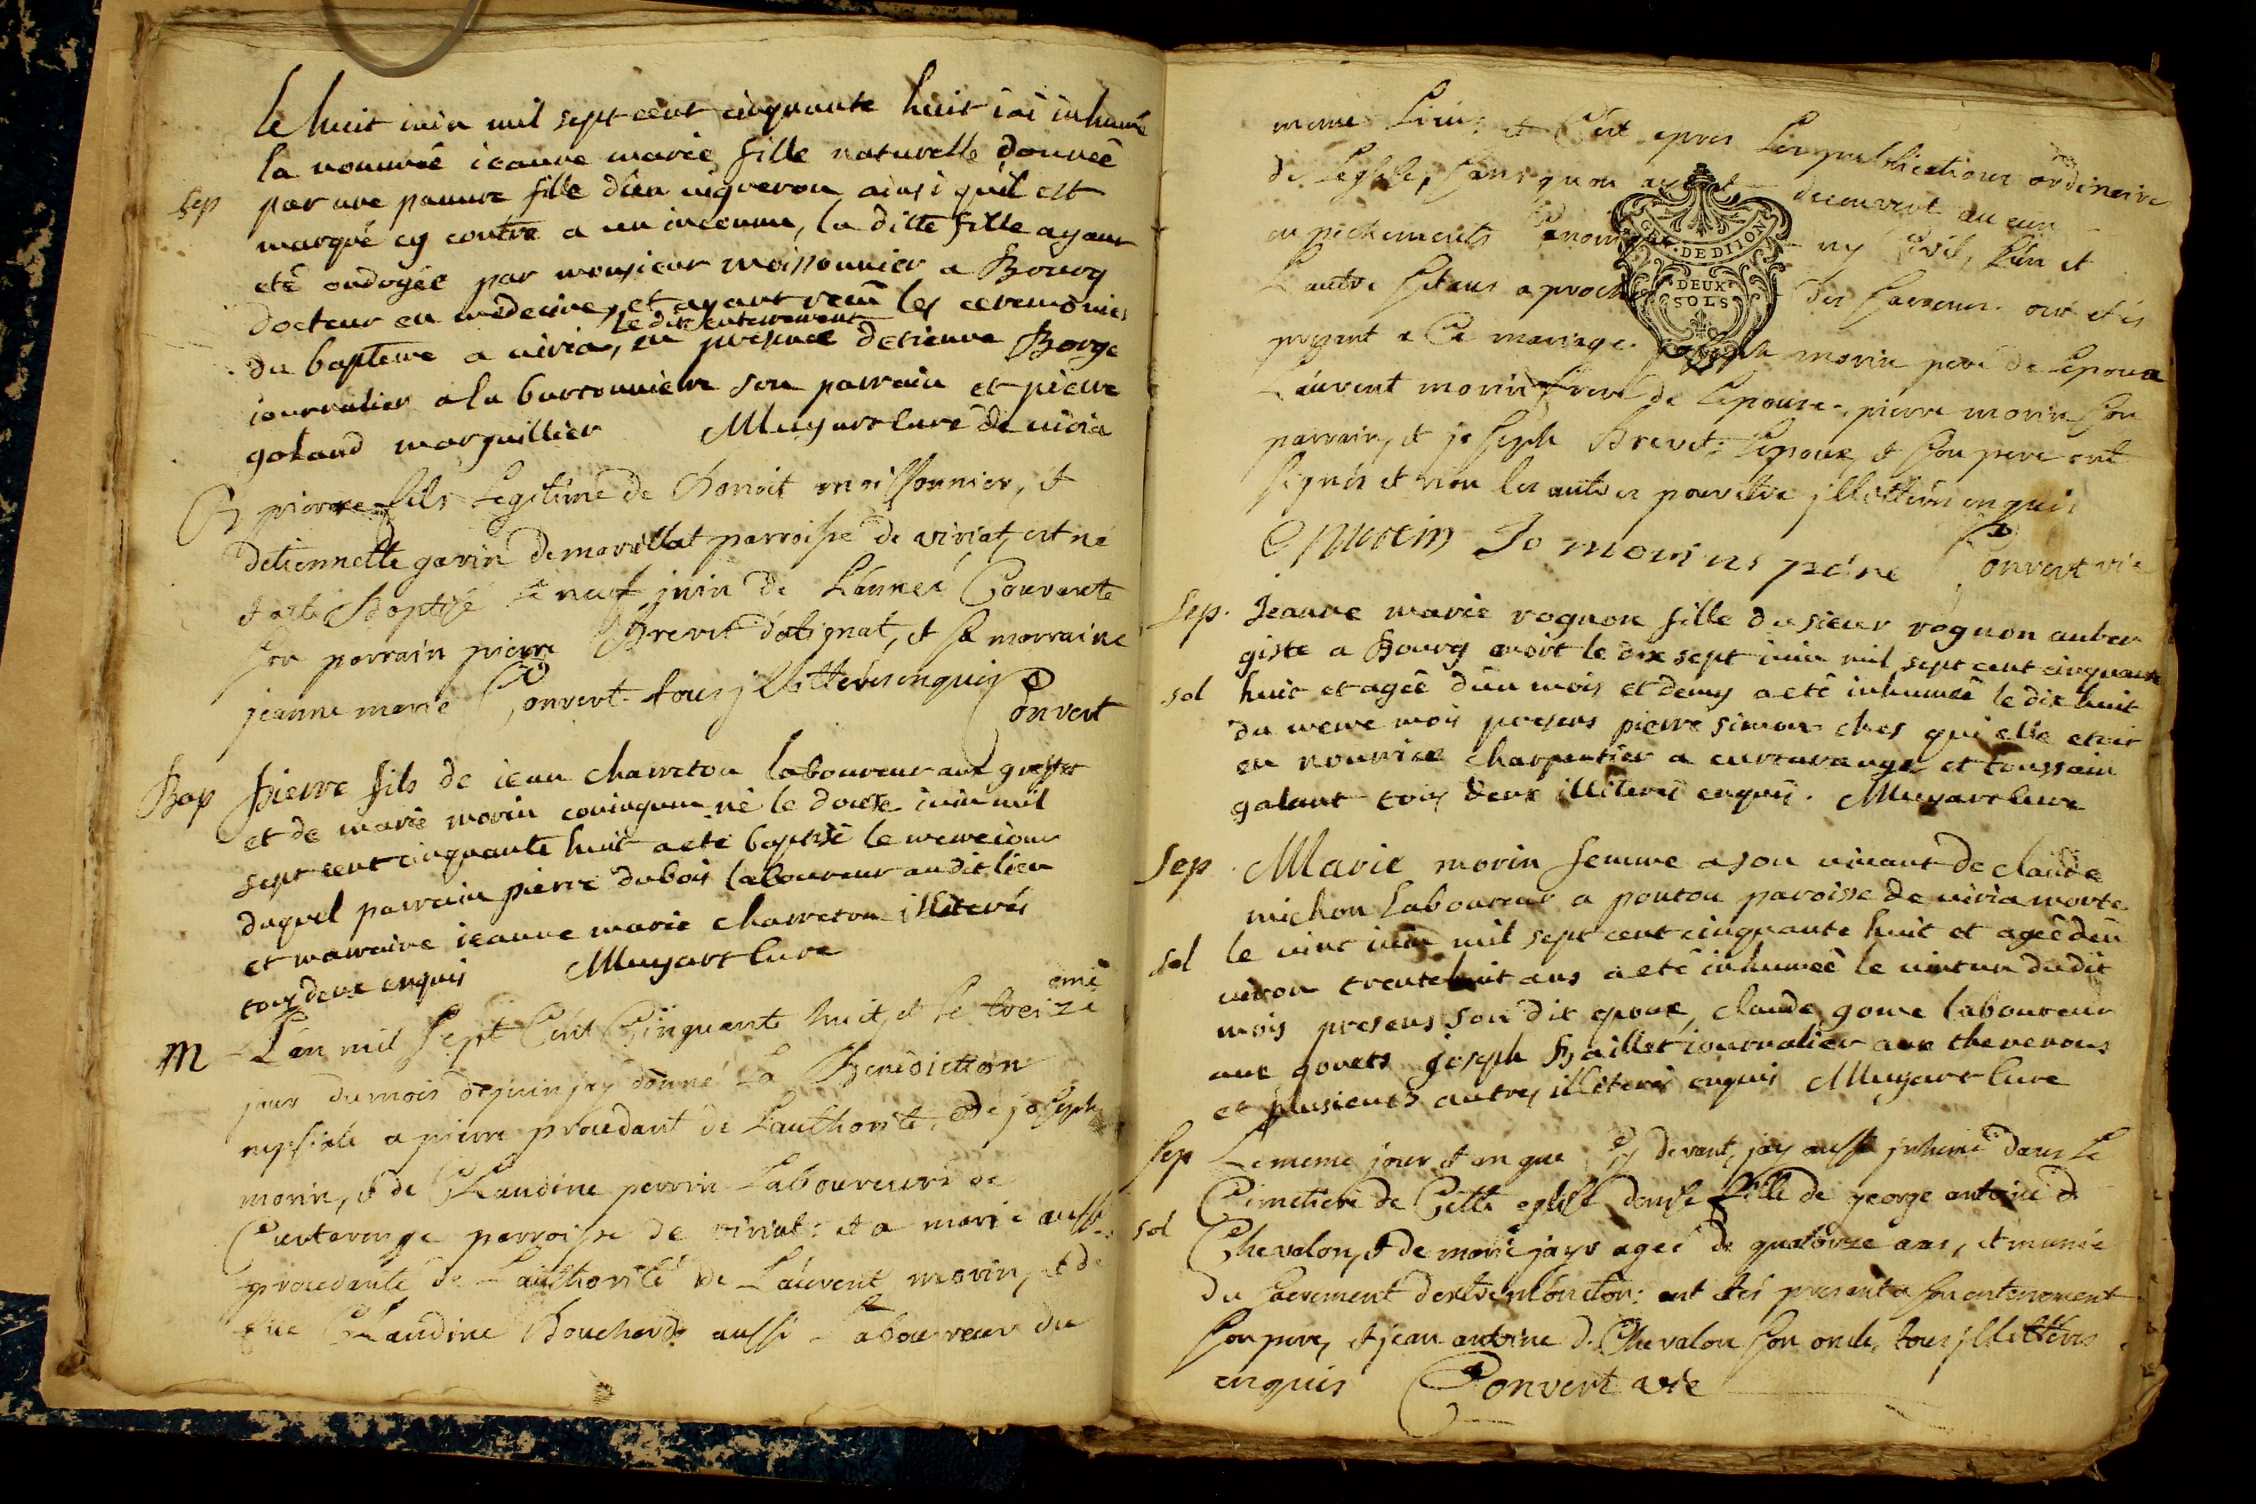 le huit iuin mil sept cent cinquante huit iai inhumé
la nommée ieanne marie fille naturelle donnée
sep par une pauvre fille d'un vigneron ainsi quil est
marqué cy contre a un inconnu, la ditte fille ayant
eté ondoyée par monsieur moissonnier a Bourg
docteur en medecine, et ayant recu les ceremonies
le dit enterrement
du bapteme a viria, en presence detienne Borge
iournalier a la bartonniere son parrain et pierre
goland marguillier Muyart curé de viria
B pierre fils Legitime de Benoit moissonnier, et
detiennette gavin de marillat parroisse de viriat, est né
et asté Baptizé le neuf juin de Lannée Courante
son parrain pierre Brevet d'atignat, et sa marraine
jeanne marie Convert tous jllitterés enquis Convert
Bap pierre fils de iean charreton laboureur aux greffes
et de marie morin coniugum né le douze iuin mil
sept cent cinquante huit a eté baptisé le meme iour
duquel parrain pierre dubois laboureur au dit lieu
et marraine ieanne marie charreton illiterés
tous deux enquis Muyart Cure
M L'an mil Sept Cent Cinquante huit, et le treizieme
jour du mois de juin jay donné La Benediction
nuptiale a pierre procedant de Lauthorité de joseph
morin, et de Claudine perrin Laboureurs de
Curtaringe parroisse de viriat: et a marie aussi
procedante de Lauthorité de Laurent morin, et de
Claudine Bouchard aussi Laboureurs du
meme Lieu: et C'est apres Les publications ordinaires
de Leglise, sans quon ayt decouvert aucun
empechements Canonique ny Civil, L'un et
L'autre s'etant aproché des sacremens. ont etés
present a Ce mariage. joseph morin pere de Lepoux
Laurent morin frere de Lepouse, pierre morin son
parrain, et joseph Brevet: Lepoux, et son pere ont
signés et non les autres pour etre jllitterés enquis
P morin Jo morins pere Convert vie
Sep. Jeanne marie rognon fille du sieur rognon auber
giste a Bourg mort le dix sept iuin mil sept cent cinquante
sol huit et agée d'un mois et demy a eté inhumée le dix huit
du meme mois presens pierre simon ches qui elle etoit
en nourrice charpentier a curtaringe et toussain
galant tous deux illiterés enquis. Muyart cure
Sep Marie morin femme a son vivant de claude
michon Laboureur a pontou paroisse de viria morte
sol le vint iuin mil sept cent cinquante huit et agée d'en
viron trente huit ans a eté inhumée le vint un du dit
mois presens son dit epoux, claude gome laboureur
aux govets joseph paillet iournalier aux thevenons
et plusieurs autres illiterés enquis Muyart Cure
Sep Le meme jour et an que Cy devant, jay aussi jnhumé dans le
Cimetiere de Cette eglise denise fille de george antoine d
sol Chevalon, et de marie jayr agée de quatorze ans, et munie
du sacrement dextremonction: ont etés present a son enterrement
son pere, et jean antoine d Chevalon son oncle, tous jllitterés
enquis Convert vie
GN. DE DIJON
DEUX
SOLS